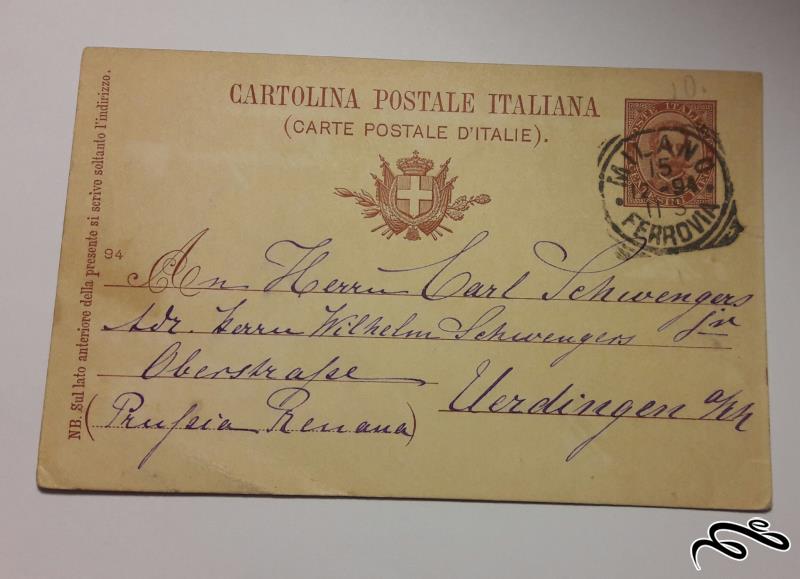 CARTOLINA POSTALE ITALIANA
(CARTE POSTALE D'ITALIE).
POSTE ITALI
MILANO
15
94
FERROVIA
10.
NB. Sul lato anteriore della presente si scrive soltanto l'indirizzo.
94
An Herrn Carl Schwengers jr
Adr. Herrn Wilhelm Schwengers
Oberstraße
Uerdingen a/Rh
(Prussia Renana)